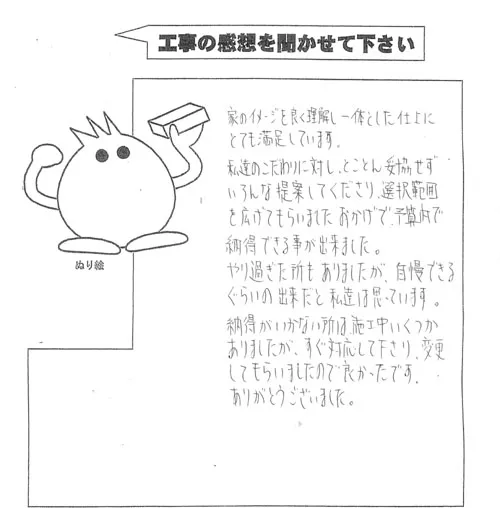 工事の感想を聞かせて下さい
家のイメージを良く理解し一体とした仕上に
とても満足しています。
私達のこだわりに対し、とことん妥協せず
いろんな提案してくださり、選択範囲
を広げてもらいました おかげで、予算内で
納得できる事が出来ました。
やり過ぎた所もありましたが、自慢できる
ぐらいの出来だと私達は思っています。
納得がいかない所は、施工中いくつか
ありましたが、すぐ対応して下さり、変更
してもらいましたので良かったです。
ありがとうございました。
ぬり絵